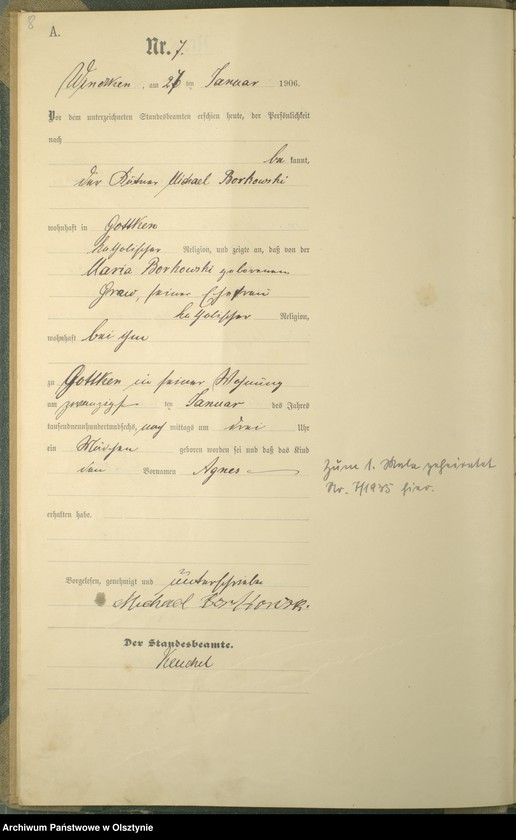 8
A.
Nr. 7.
am ten Januar 1906.
Vor dem unterzeichneten Standesbeamten erschien heute, der Persönlichkeit
nach
be kannt,
der Michael Borkowski
wohnhaft in Gottken
katholischer Religion, und zeigte an, daß von der
Maria Borkowski geborenen
Graw, seiner Ehefrau
katholischer Religion,
wohnhaft bei ihm
zu Gottken in seiner Wohnung
am ten Januar des Jahres
tausendneunhundertundsechs, nach mittags um drei Uhr
ein Mädchen geboren worden sei und daß das Kind
den Vornamen Agnes
erhalten habe.
Zum 1. Male geheiratet
Nr. 7/1935 hier.
Vorgelesen, genehmigt und unterschrieben
Michael Borkowski.
Der Standesbeamte.
Archiwum Państwowe w Olsztynie